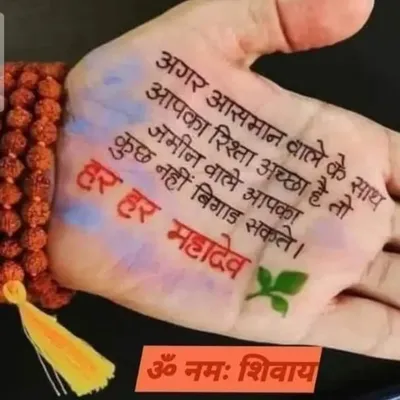 अगर आसमान वाले के साथ
आपका रिश्ता अच्छा है तो
जमीन वाले आपका
कुछ नहीं बिगाड़ सकते।
हर हर महादेव
ॐ नमः शिवाय